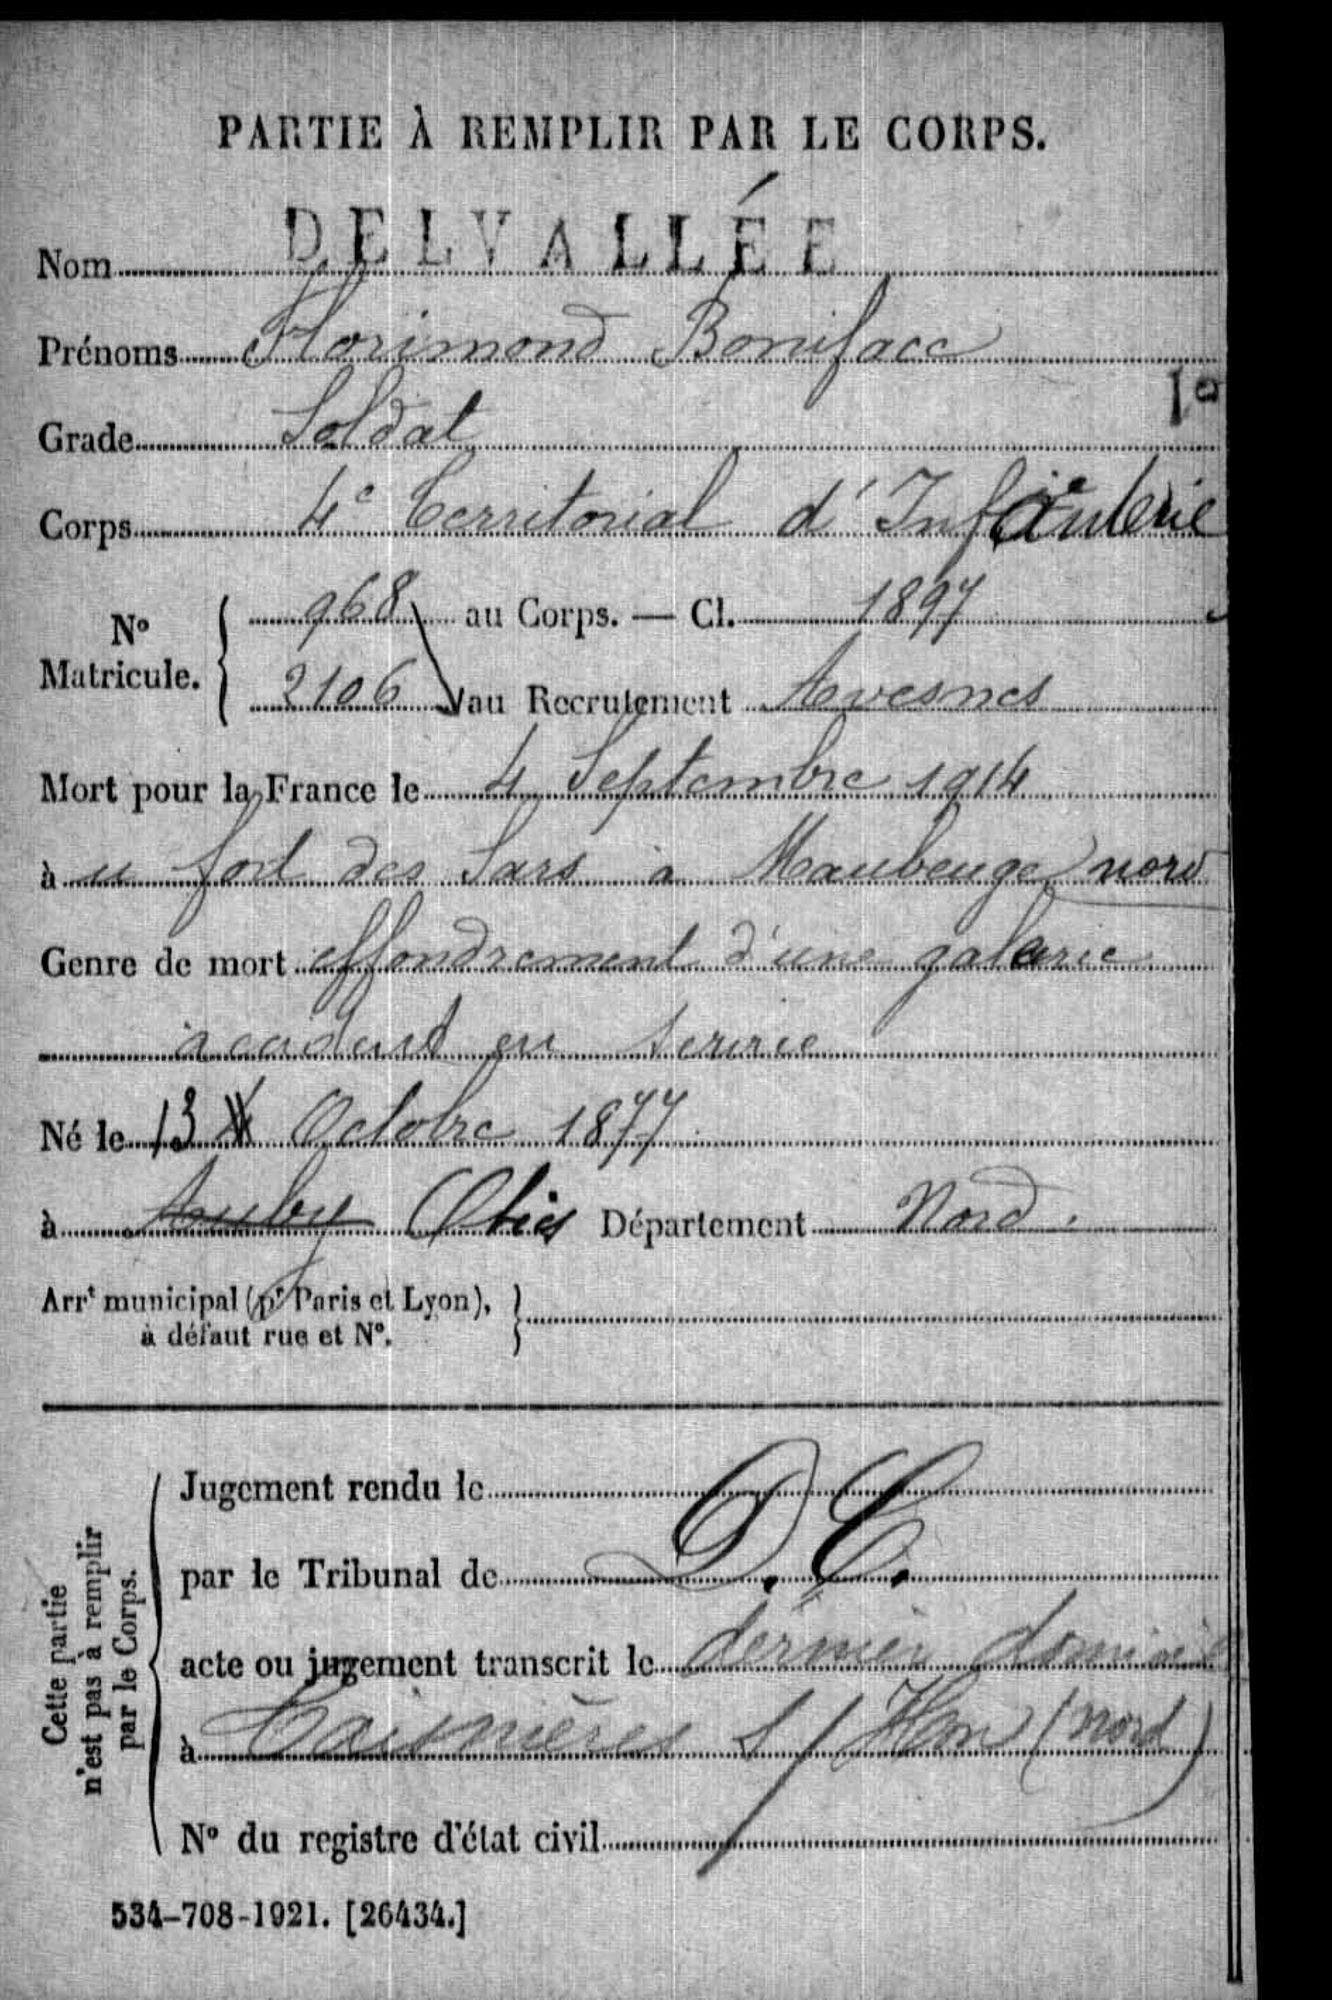 PARTIE À REMPLIR PAR LE CORPS.
Nom DELVALLÉE
Prénoms Florimond Boniface
Grade Soldat
Corps 4e Territorial d'Infanterie
No Matricule. 968 au Corps. — Cl. 1897
2106 au Recrutement Avesnes
Mort pour la France le 4 Septembre 1914
à u fort des Sars à Maubeuge nord
Genre de mort effondrement d'une galerie
accident en service
Né le 13 Octobre 1877
à Auby Ohies Département Nord.
Arrt municipal (pr Paris et Lyon),
à défaut rue et No.
Cette partie
n'est pas à remplir
par le Corps.
Jugement rendu le
par le Tribunal de D.C.
acte ou jugement transcrit le dernier domicile
à Cousolre s/ (nord)
No du registre d'état civil
534-708-1921. [26434.]